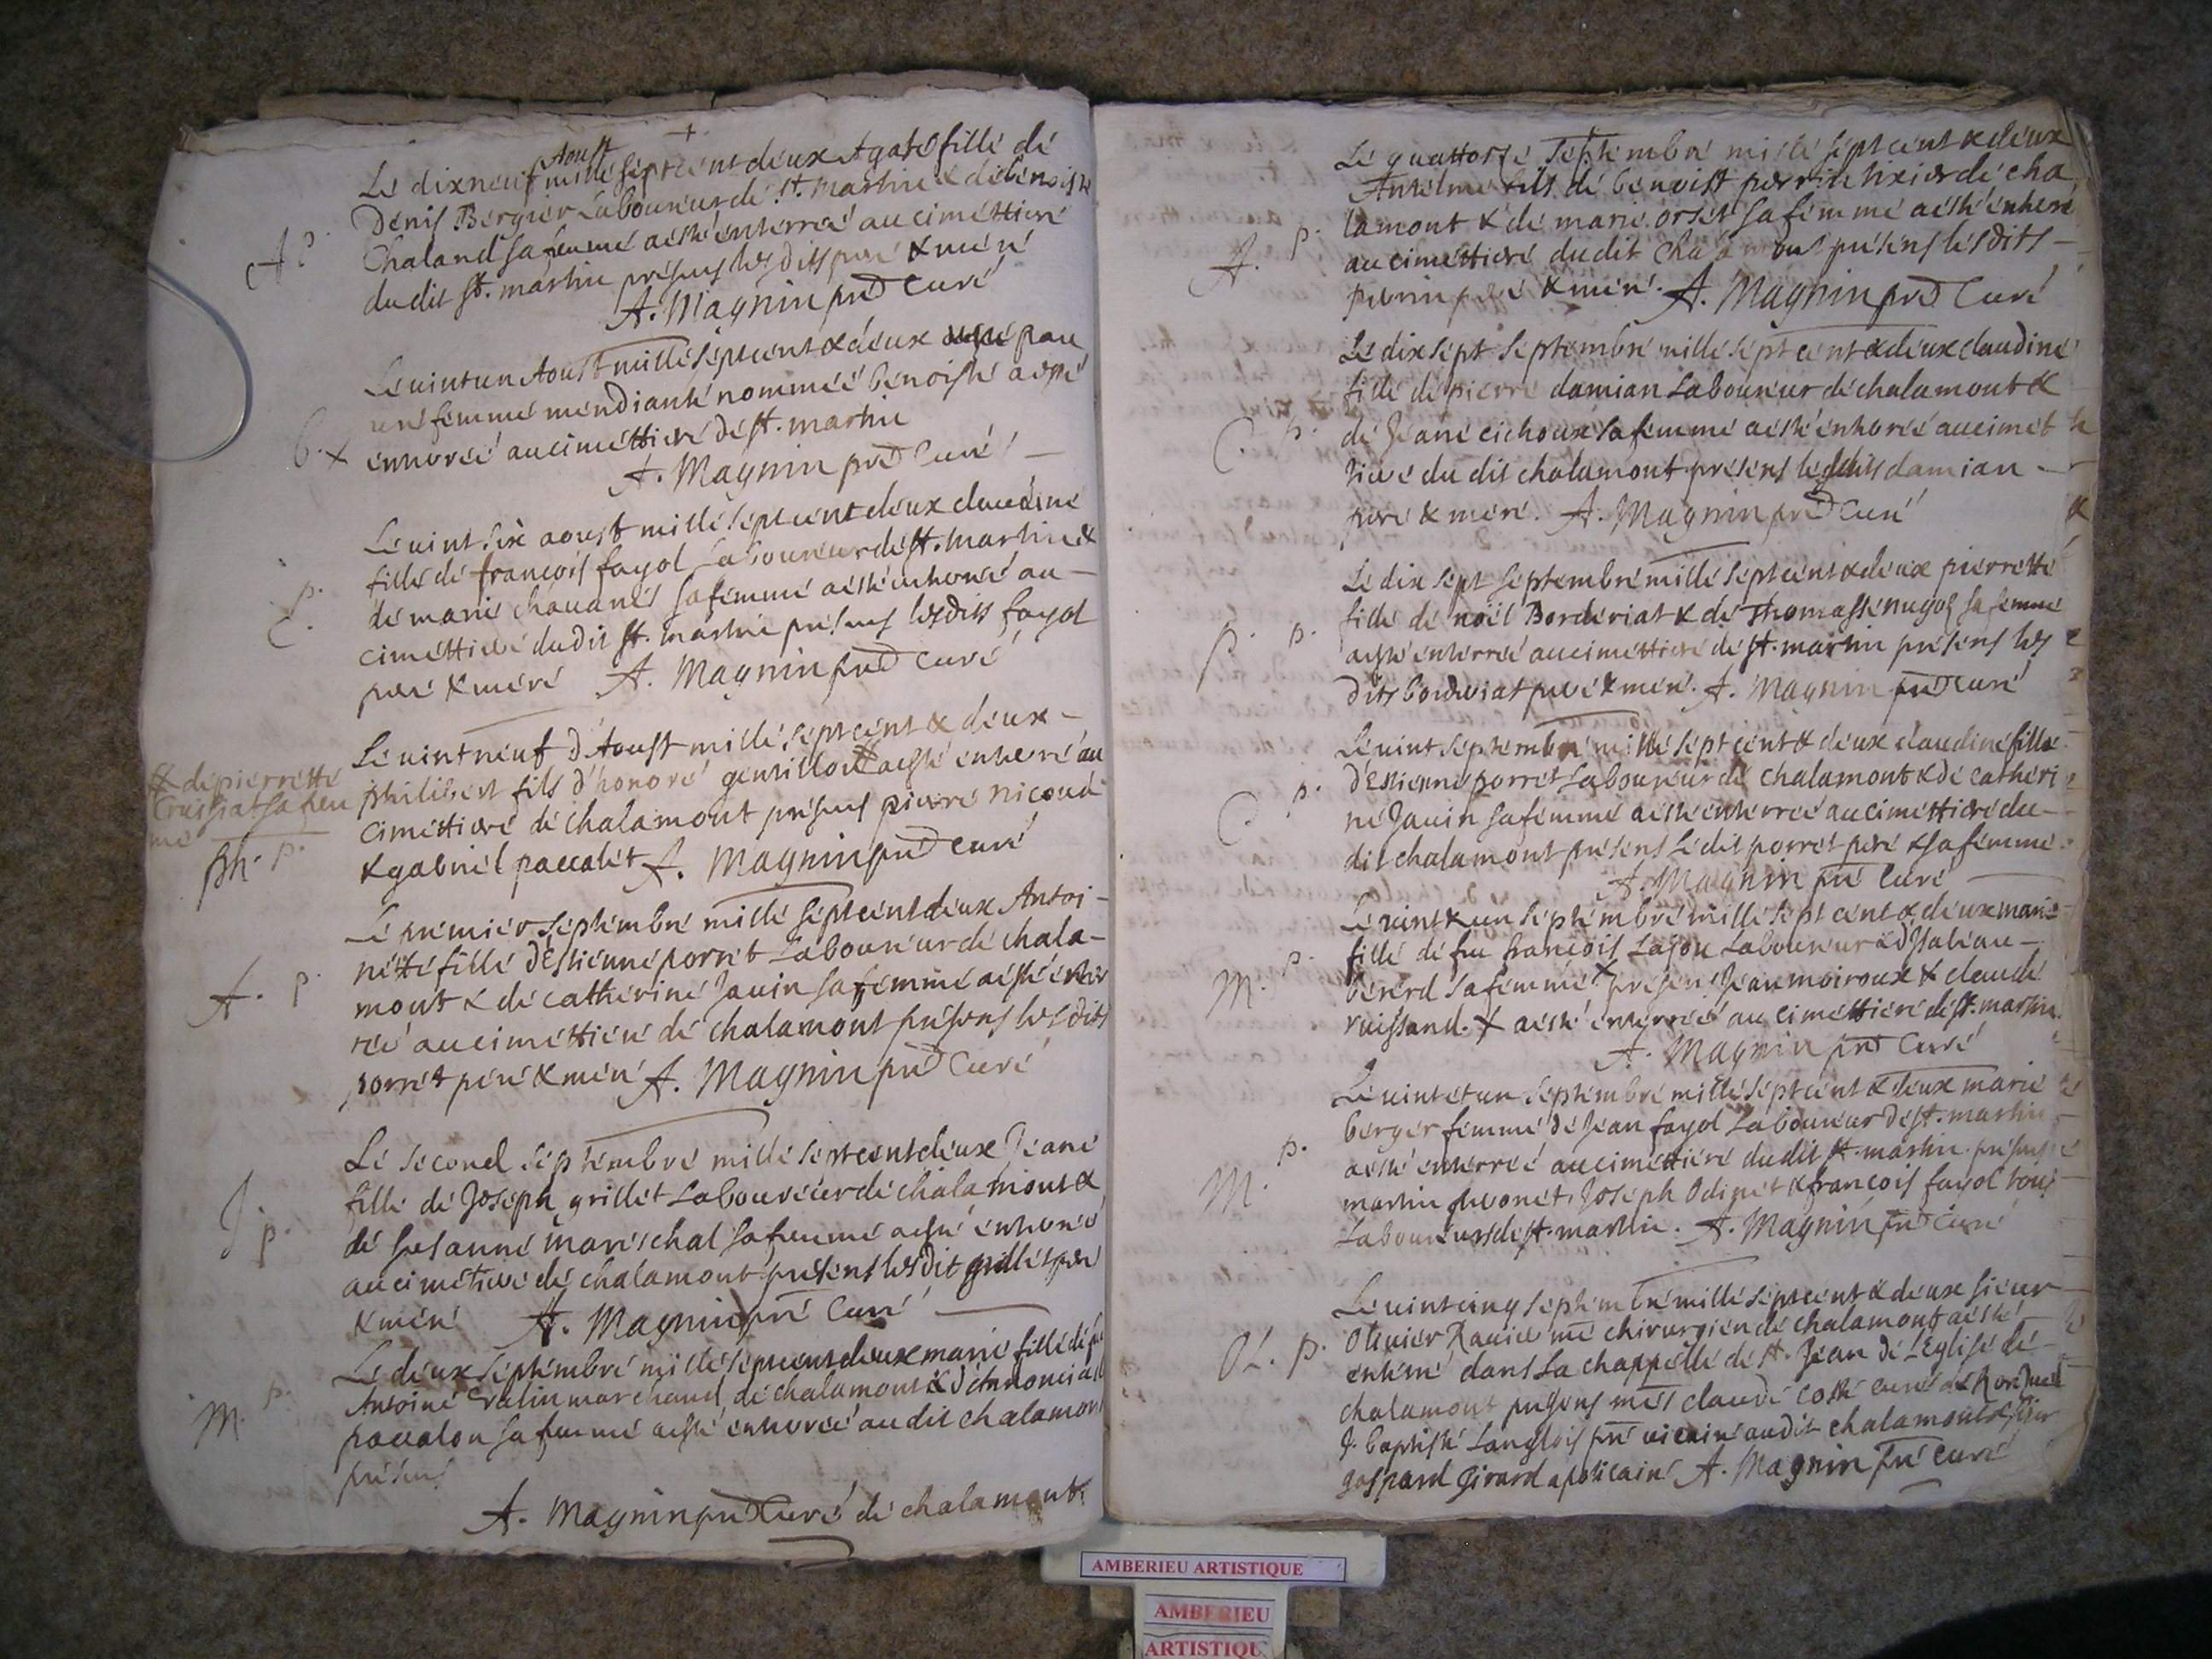 +
Le dixneuf Aoust mille sept cent deux Agate fille de
A p. Denis Bergier Laboureur de St. Martin & de benoiste
Chaland sa femme a esté enterreé au cimettiere
du dit st. martin présens les dits pere & mere
A. Magnin pre Curé
Le vint un Aoust mille sept cent & deux
une femme mendiante nommeé benoiste a esté
B. x enterreé au cimettiere de st. martin
A. Magnin pre Curé
Le vint six aoust mille sept cent deux claudine
fille de françois fayol Laboureur de st. martin &
C. p. de marie chavanes sa femme a esté enterreé au
cimettiere du dit st. martin présens les dits fayol
pere & mere A. Magnin pre curé
Le vint neuf d'Aoust mille sept cent & deux
& de pierrette philibert fils d'honoré a esté enterré au
Cruissiat sa fem cimettiere de chalamont présens pierre nicoud
me
ph. p. & gabriel pacalet A. Magnin pre curé
Le premier septembre mille sept cent deux Antoi-
nette fille d'Estienne porret Laboureur de chala-
A. p. mont & de catherine Javin sa femme a esté enter
reé au cimettiere de chalamont présens les dits
porret pere & mere A. Magnin pre Curé
Le second septembre mille sept cent deux Jeane
fille de Joseph grillet Laboureur de chalamont &
J. p. de susanne mareschal sa femme a esté enterreé
au cimetiere de chalamont présens les dit grillet pere
& mere A. Magnin pre Curé
Le deux septembre mille sept cent deux marie fille de
M. p. Antoine marchand de chalamont &
sa femme a esté enterreé au dit chalamont
présens
A. Magnin pre Curé de chalamont
Le quattorse septembre mille sept cent & deux
Anselme fils de benoist perrin tixier de cha
A. p. lamont & de marie orset sa femme a esté enterré
au cimettiere du dit chalamont présens les dits
perrin pere & mere. A. Magnin pre Curé
Le dix sept septembre mille sept cent & deux claudine
fille de pierre damian Laboureur de chalamont &
C. p. de Jeane cichoux sa femme a esté enterreé au cimet
tiere du dit chalamont présens lesdits damian
pere & mere. A. Magnin pre Curé
Le dix sept septembre mille sept cent & deux pierrette
fille de noël Borderiat & de Thomasse sa femme
P. p. a esté enterreé au cimettiere de st. martin présens les
dits borderiat pere & mere. A. Magnin pre curé
Le vint septembre mille sept cent & deux claudine fille
d'Estienne porret Laboureur de chalamont & de catheri
C. p. ne Javin sa femme a esté enterreé au cimettiere du
dit chalamont présens le dit porret pere & sa femme
A. Magnin pre Curé
Le vint & un septembre mille sept cent & deux marie
fille de feu françois Laboureur & d'Isabeau
M. p. bererd sa femme x présens Jean moiroux & claude
ruissand. x a esté enterreé au cimettiere de st. martin.
A. Magnin pre Curé
Le vint et un septembre mille sept cent & deux marie
berger femme de Jean fayol Laboureur de st. martin
M. p. a esté enterreé au cimettiere du dit st. martin présens
martin Joseph Odinet & françois fayol tous
Laboureurs de st. martin. A. Magnin pre Curé
Le vint cinq septembre mille sept cent & deux sieur
Ol. p. Olivier Ravier me chirurgien de chalamont a esté
enterré dans la chappelle de st. Jean de L'Eglise de
chalamont présens claude coste curé de
J. baptiste Langlois pre vicaire au dit chalamont & sieur
gaspard Girard apoticaire A. Magnin pre curé
AMBERIEU ARTISTIQUE
AMBERIEU
ARTISTIQU